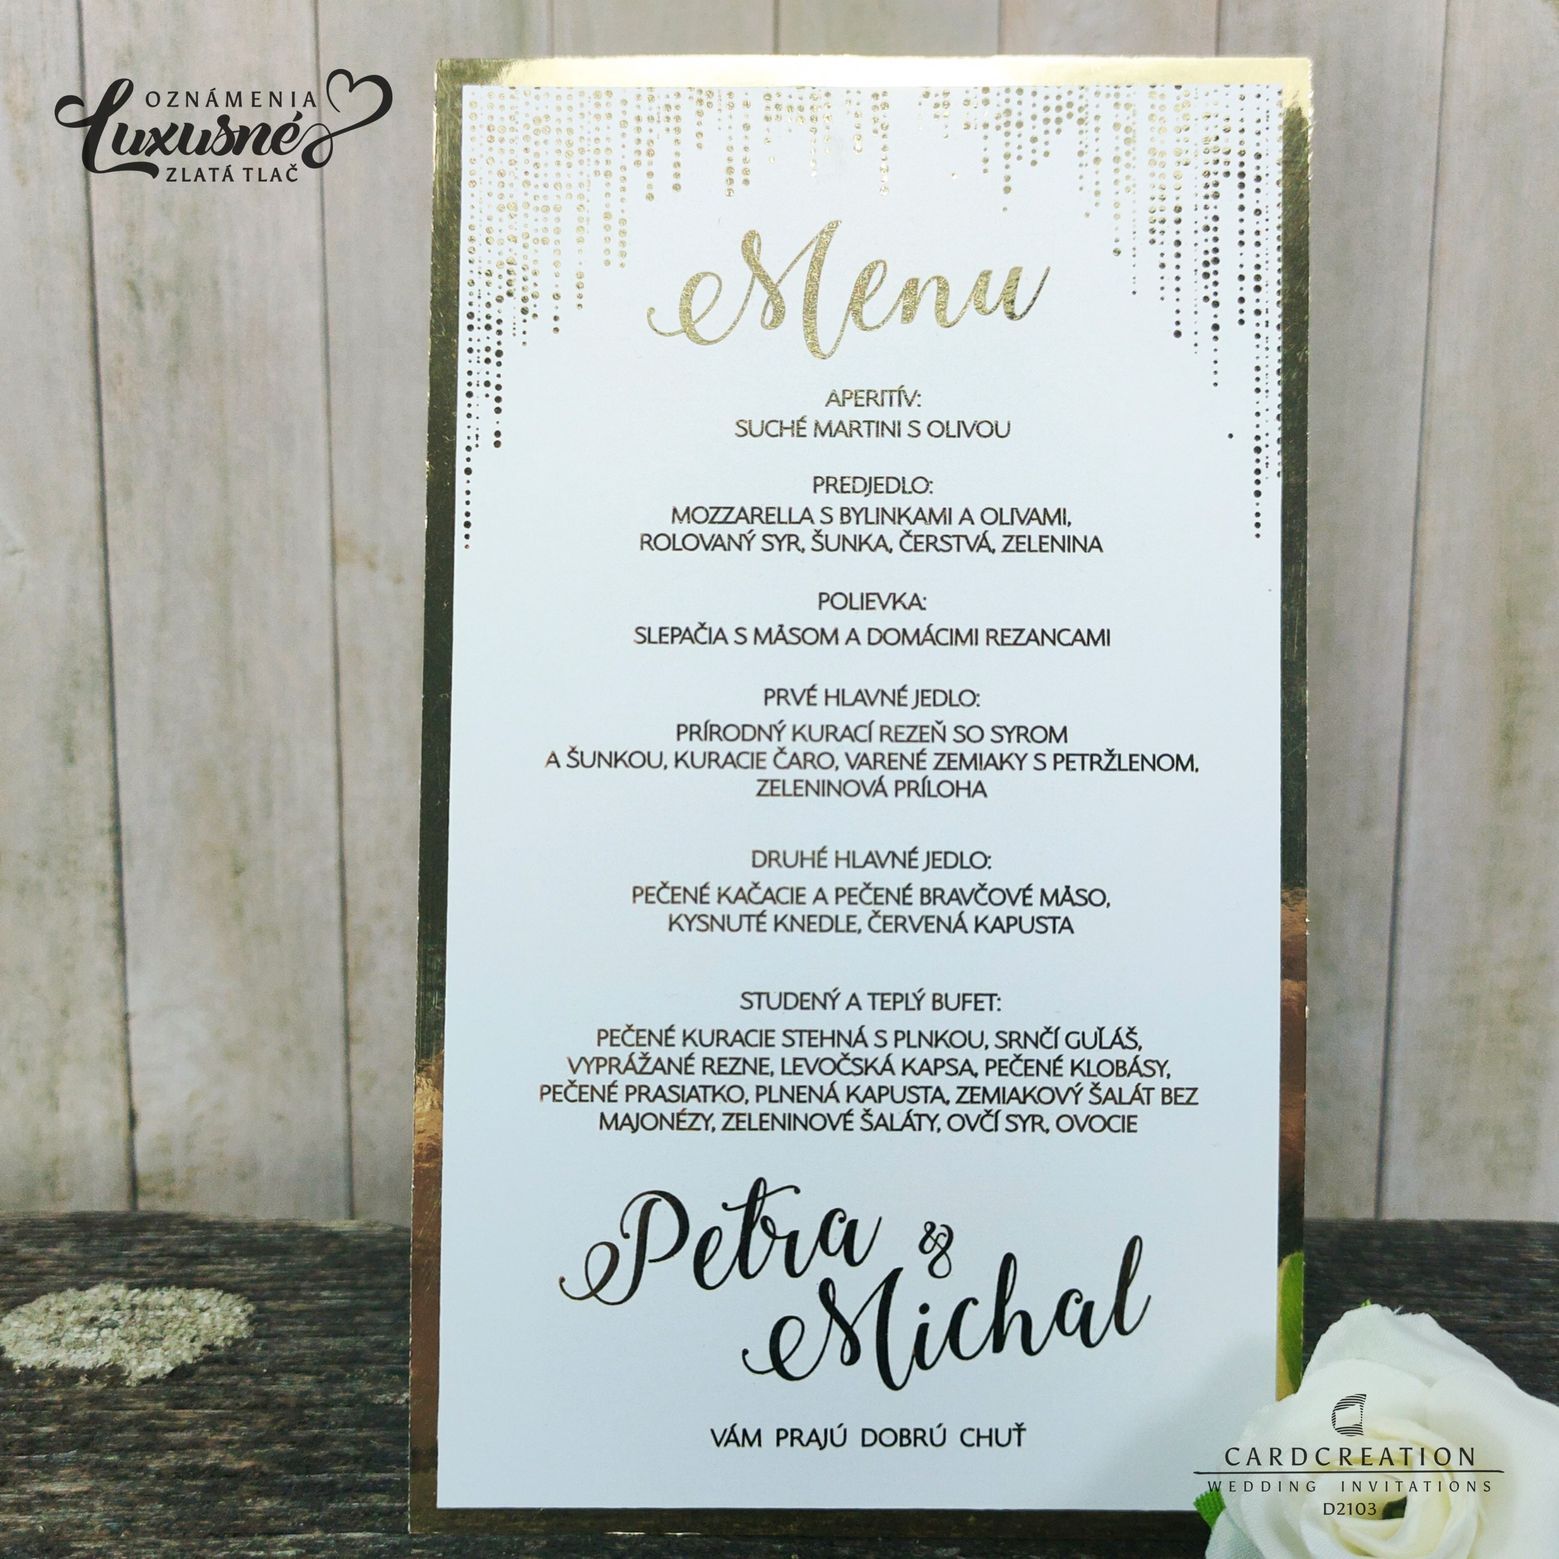 OZNÁMENIA
Luxusné
ZLATÁ TLAČ
Menu
APERITÍV:
SUCHÉ MARTINI S OLIVOU
PREDJEDLO:
MOZZARELLA S BYLINKAMI A OLIVAMI,
ROLOVANÝ SYR, ŠUNKA, ČERSTVÁ, ZELENINA
POLIEVKA:
SLEPAČIA S MÅSOM A DOMÁCIMI REZANCAMI
PRVÉ HLAVNÉ JEDLO:
PRÍRODNÝ KURACÍ REZEŇ SO SYROM
A ŠUNKOU, KURACIE ČARO, VARENÉ ZEMIAKY S PETRŽLENOM,
ZELENINOVÁ PRÍLOHA
DRUHÉ HLAVNÉ JEDLO:
PEČENÉ KAČACIE A PEČENÉ BRAVČOVÉ MÅSO,
KYSNUTÉ KNEDLE, ČERVENÁ KAPUSTA
STUDENÝ A TEPLÝ BUFET:
PEČENÉ KURACIE STEHNÁ S PLNKOU, SRNČÍ GUĽÁŠ,
VYPRÁŽANÉ REZNE, LEVOČSKÁ KAPSA, PEČENÉ KLOBÁSY,
PEČENÉ PRASIATKO, PLNENÁ KAPUSTA, ZEMIAKOVÝ ŠALÁT BEZ
MAJONÉZY, ZELENINOVÉ ŠALÁTY, OVČÍ SYR, OVOCIE
Petra &
Michal
VÁM PRAJÚ DOBRÚ CHUŤ
CARDCREATION
WEDDING INVITATIONS
D2103